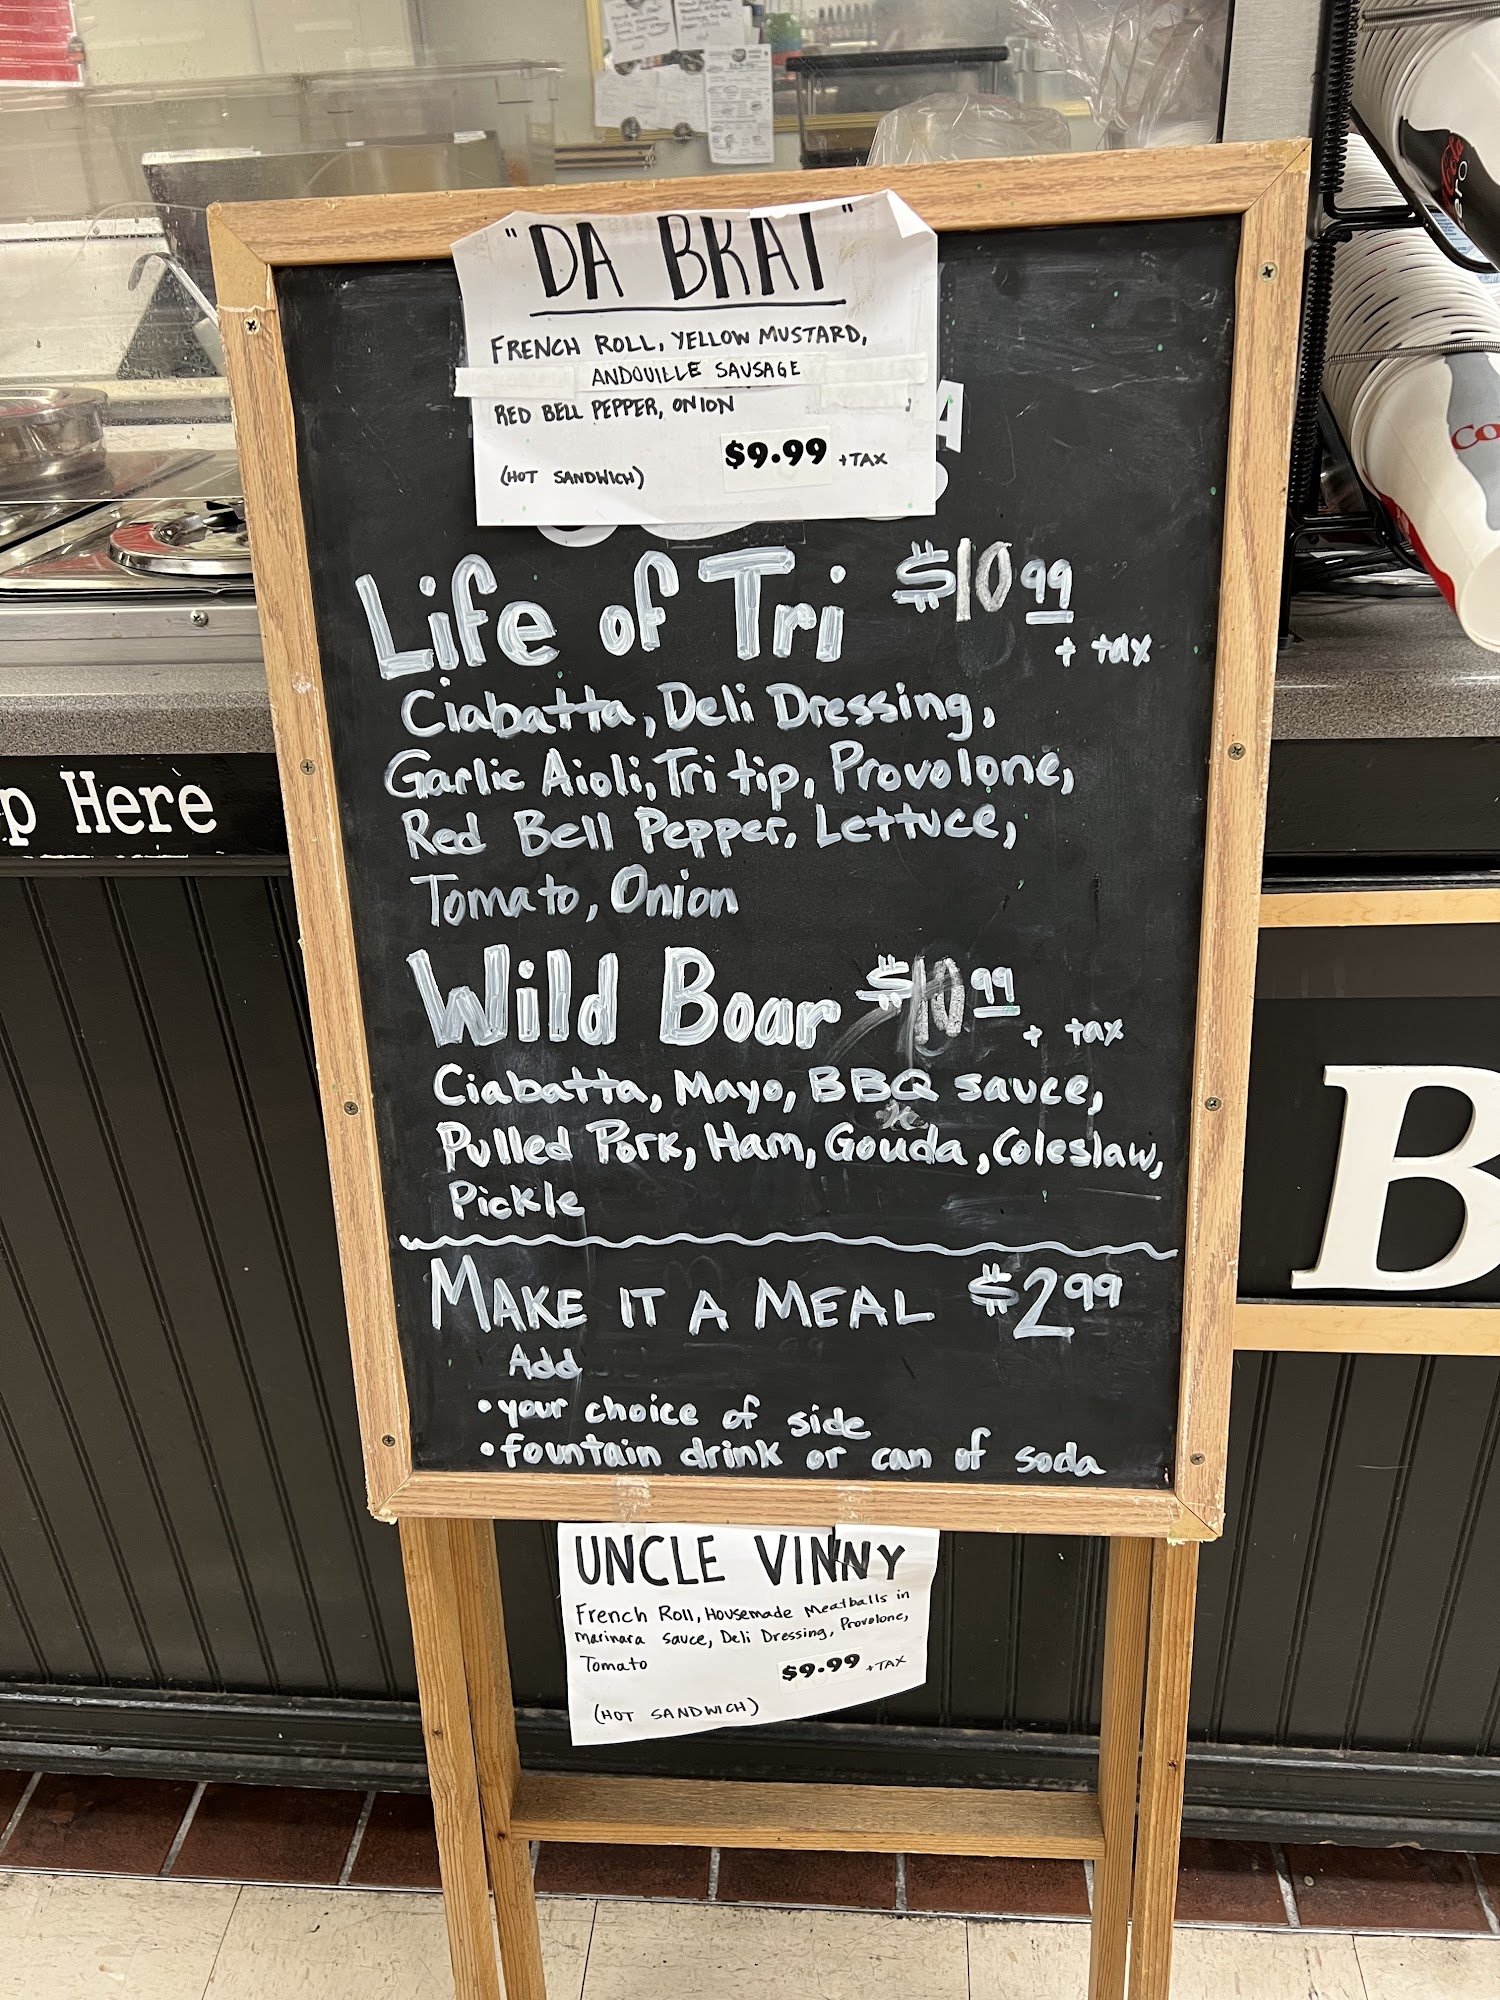 "DA BRAT"
FRENCH ROLL, YELLOW MUSTARD,
ANDOUILLE SAUSAGE
RED BELL PEPPER, ONION
(HOT SANDWICH) $9.99 +TAX
A
Life of Tri $10.99
+ tax
Ciabatta, Deli Dressing,
Garlic Aioli, Tri tip, Provolone,
Red Bell Pepper, Lettuce,
Tomato, Onion
Wild Boar $10.99
+ tax
Ciabatta, Mayo, BBQ sauce,
Pulled Pork, Ham, Gouda, Coleslaw,
Pickle
MAKE IT A MEAL $2.99
Add
• your choice of side
• fountain drink or can of soda
UNCLE VINNY
French Roll, Housemade Meatballs in
marinara sauce, Deli Dressing, Provolone,
Tomato $9.99 +TAX
(HOT SANDWICH)
p Here
B
Coca
Co